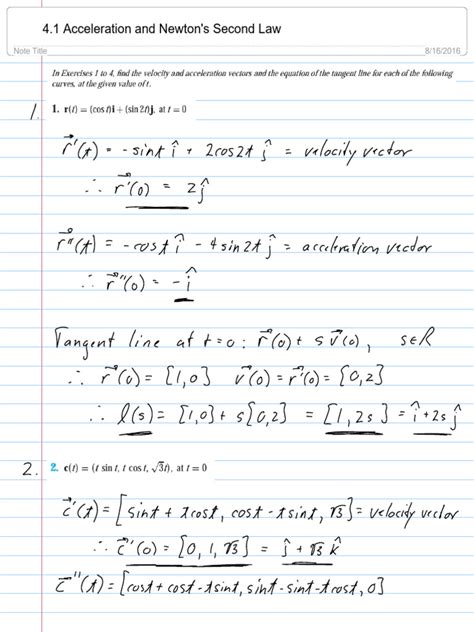 4.1 Acceleration and Newton's Second Law
Note Title
8/16/2016
In Exercises 1 to 4, find the velocity and acceleration vectors and the equation of the tangent line for each of the following
curves, at the given value of t.
1. 1. r(t) = (cos t)i + (sin 2t)j, at t = 0
r⃗'(t) = -sint î + 2cos2t ĵ = velocity vector
∴ r⃗'(0) = 2ĵ
r⃗''(t) = -cost î - 4sin2t ĵ = acceleration vector
∴ r⃗''(0) = -î
Tangent line at t=0: r⃗(0) + s v⃗(0), s∈R
∴ r⃗(0) = [1,0] v⃗(0) = r⃗'(0) = [0,2]
∴ l(s) = [1,0] + s[0,2] = [1,2s] = î + 2s ĵ
2. 2. c(t) = (t sin t, t cos t, √3t), at t = 0
c⃗'(t) = [sint + tcost, cost - tsint, √3] = velocity vector
∴ c⃗'(0) = [0, 1, √3] = ĵ + √3 k̂
c⃗''(t) = [cost + cost - tsint, -sint - sint - tcost, 0]